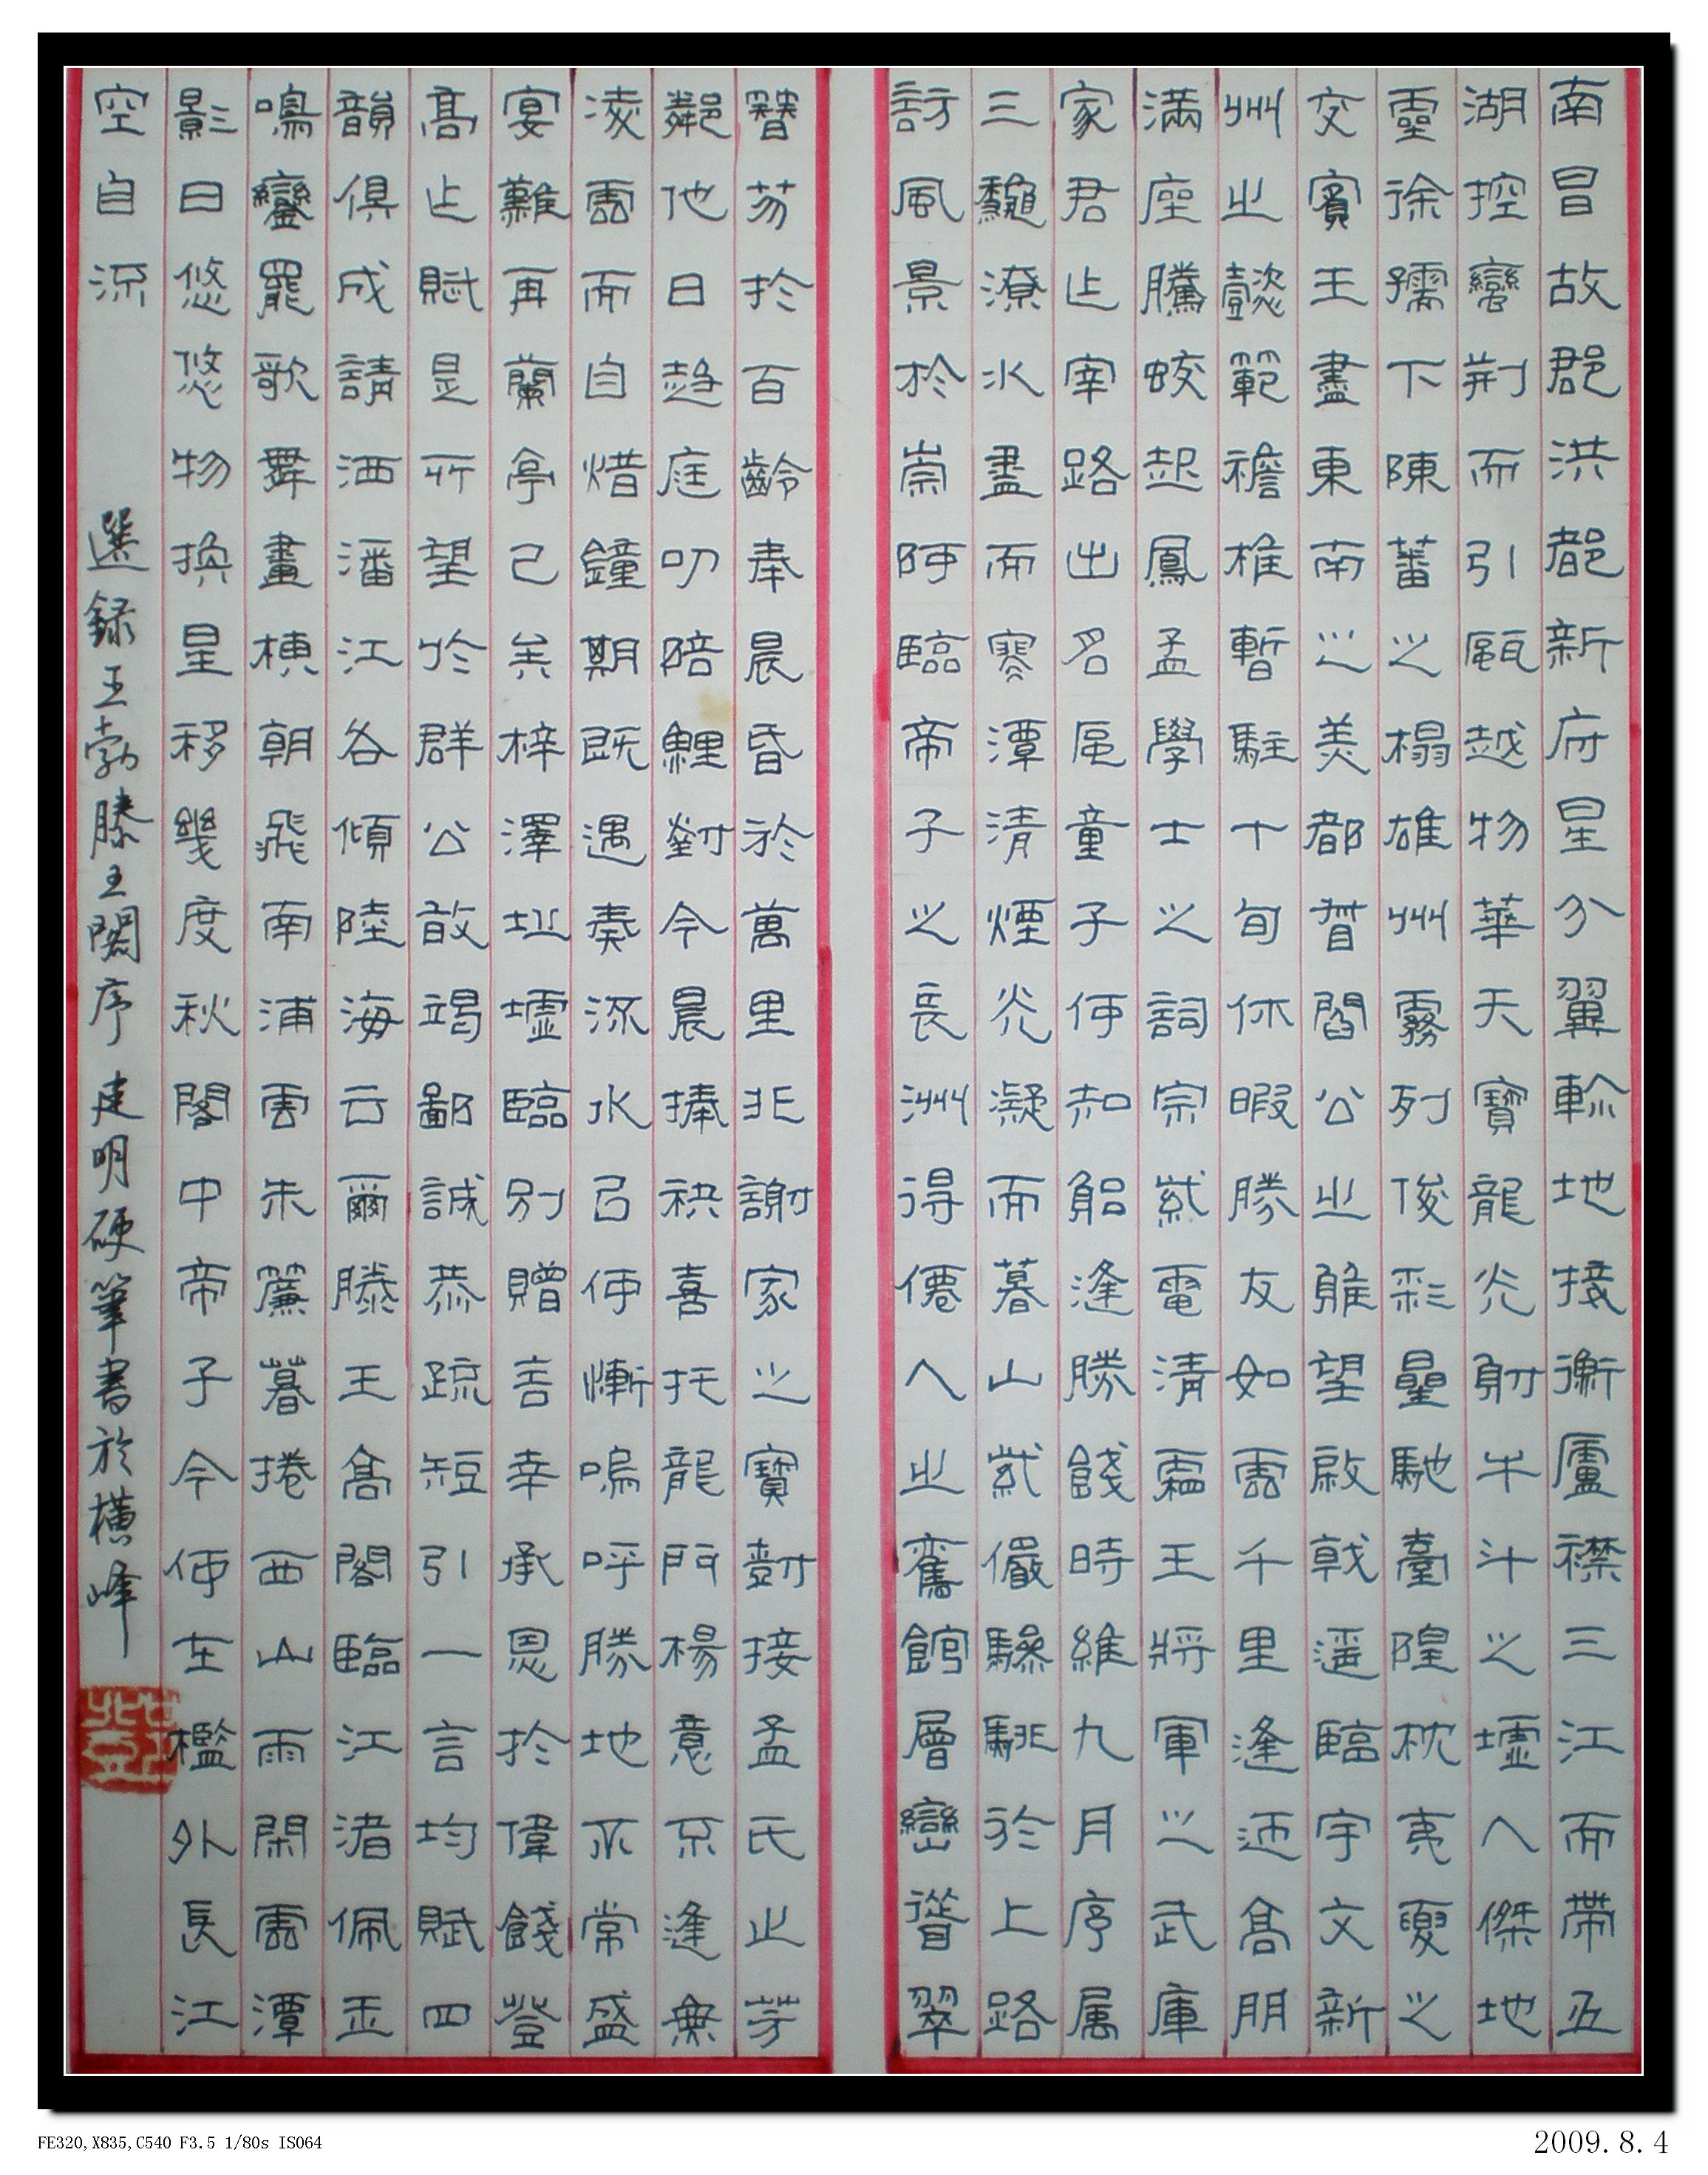 南昌故郡洪都新府星分翼軫地接衡廬襟三江而帶五
湖控蠻荆而引甌越物華天寶龍光射牛斗之墟人傑地
靈徐孺下陳蕃之榻雄州霧列俊彩星馳臺隍枕夷夏之
交賓主盡東南之美都督閻公之雅望棨戟遥臨宇文新
州之懿範襜帷暫駐十旬休暇勝友如雲千里逢迎高朋
滿座騰蛟起鳳孟學士之詞宗紫電清霜王將軍之武庫
家君作宰路出名區童子何知躬逢勝餞時維九月序属
三秋潦水盡而寒潭清煙光凝而暮山紫儼驂騑於上路
訪風景於崇阿臨帝子之長洲得僊人之舊館層巒聳翠
簪笏於百齡奉晨昏於萬里非謝家之寶樹接孟氏之芳
鄰他日趨庭叨陪鯉對今晨捧袂喜托龍門楊意不逢撫
凌雲而自惜鐘期既遇奏流水以何慚嗚呼勝地不常盛
宴難再蘭亭已矣梓澤坵墟臨別贈言幸承恩於偉餞登
高作賦是所望於群公敢竭鄙誠恭疏短引一言均賦四
韻俱成請洒潘江各傾陸海云爾滕王高閣臨江渚佩玉
鳴鑾罷歌舞畫棟朝飛南浦雲朱簾暮捲西山雨閑雲潭
影日悠悠物換星移幾度秋閣中帝子今何在檻外長江
空自流 選録王勃滕王閣序 建明硬筆書於横峰
FE320,X835,C540 F3.5 1/80s ISO64
2009.8.4